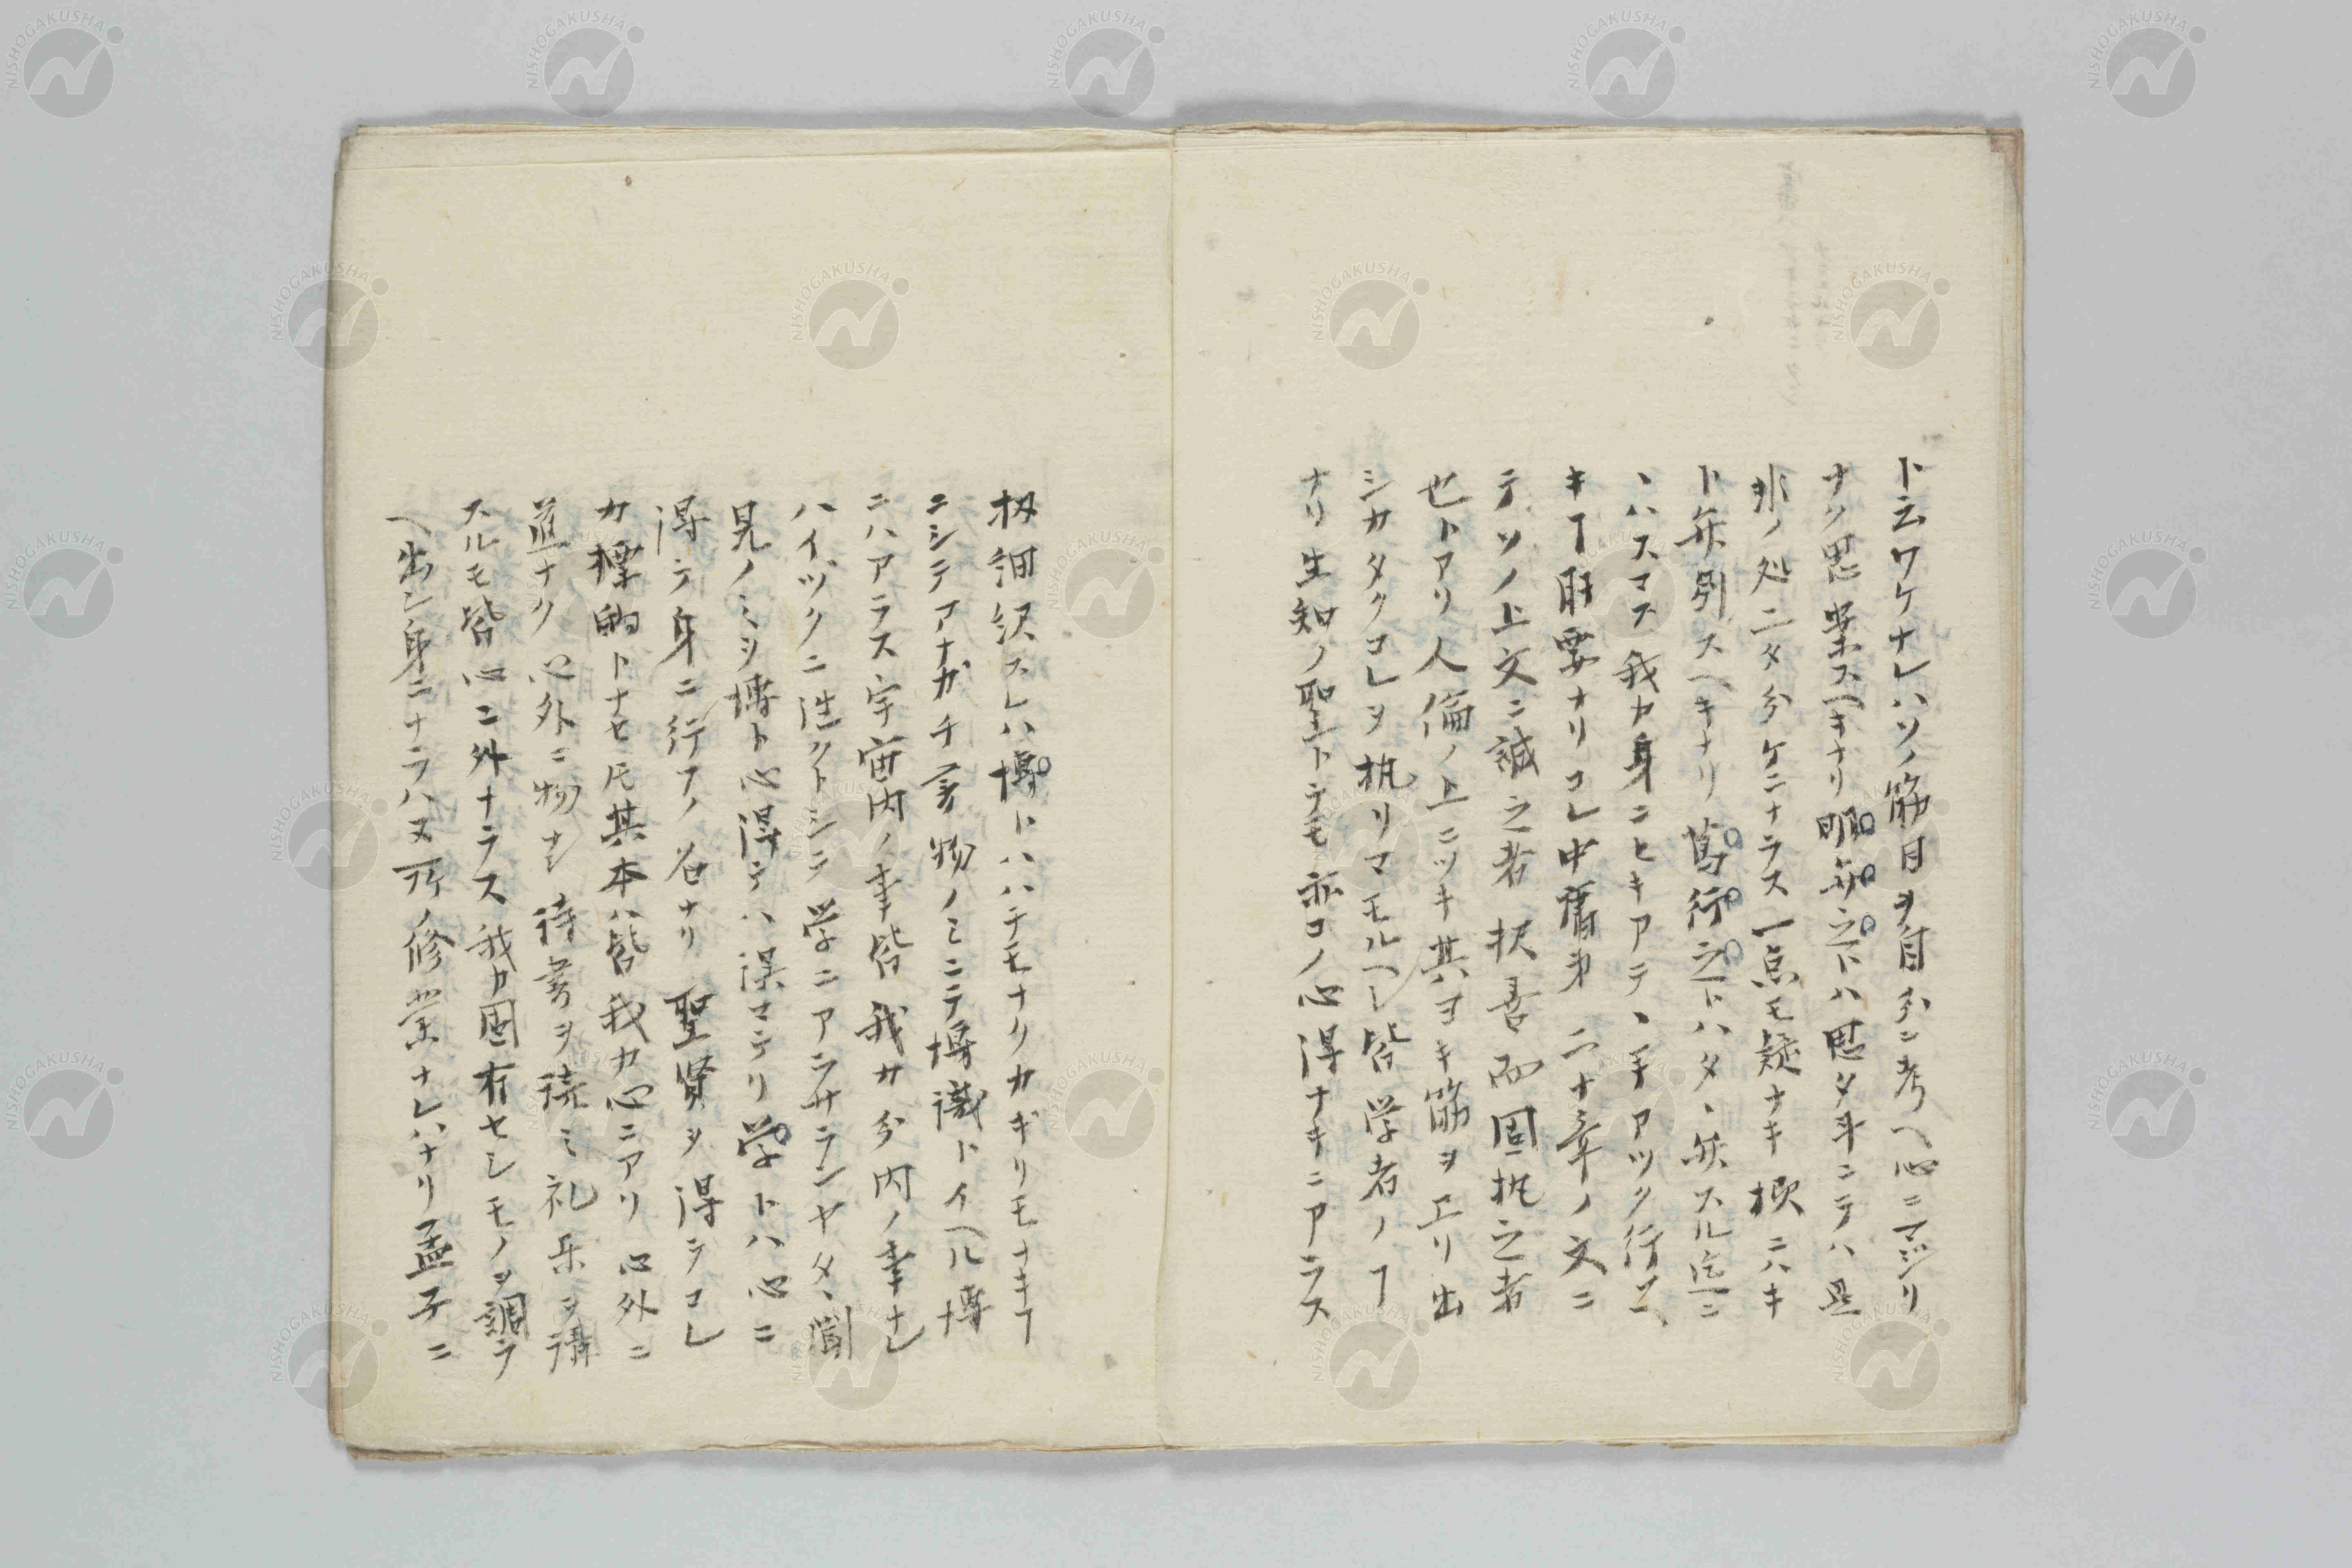 ト云ワケナレハソノ筋目ヲ自分ニ考ヘ心ニマジリ
ナク思案スヘキナリ明弁之トハ思タ斗ニテハ是
非ノ処ニタ分ケニナラス一点モ疑ナキ様ニハキ
ト弁別スヘキナリ篤行之トハタヽ弁スル迄ニ
ヽハスマス我カ身ニヒキアテヽ手アツク行
キヿ肝要ナリコレ中庸第二十章ノ文ニ
テソノ上文ニ誠之者択善而固執之者
也トアリ人倫ノ上ニツキ其ヨキ筋ヲヱリ出
シカタクコレヲ執リマモルヘシ皆学者ノヿ
ナリ生知ノ聖トテモ亦コノ心得ナキニアラス
扨細沢スレハ博トハハテモナクカギリモナキヿ
ニシテアナガチ書物ノミニテ博識トイヘル博
ニハアラス宇宙内ノ事皆我カ分内ノ事ナレ
ハイヅクニ往クトシテ学ニアラサランヤタヽ聞
見ノミヲ博ト心得テハ誤マテリ学トハ心ニ
得テ身ニ行フノ名ナリ聖賢ヲ得テコレ
カ標的トナセ𪜈其本ハ皆我カ心ニアリ心外ニ
道ナク心外ニ物ナシ詩書ヲ読ミ礼楽ヲ講
スルモ皆心ニ外ナラス我カ固有セシモノヲ調ラ
ヘ出シ身ニナラハヌ所ノ修業ナレハナリ孟子ニ